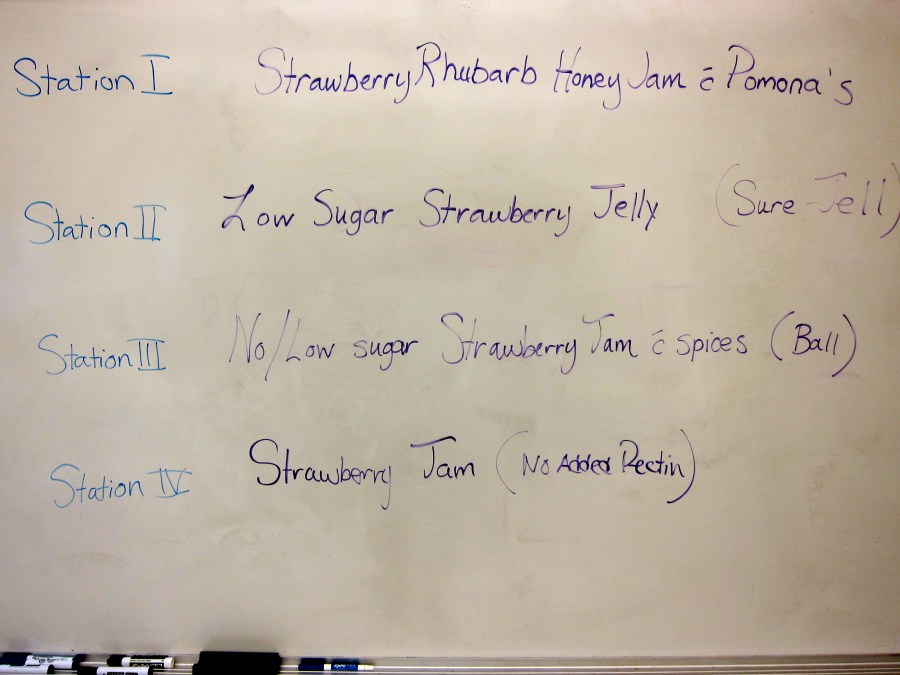 Station I Strawberry Rhubarb Honey Jam c̄ Pomona's
Station II Low Sugar Strawberry Jelly (Sure-Jell)
Station III No/Low sugar Strawberry Jam c̄ spices (Ball)
Station IV Strawberry Jam (No Added Pectin)